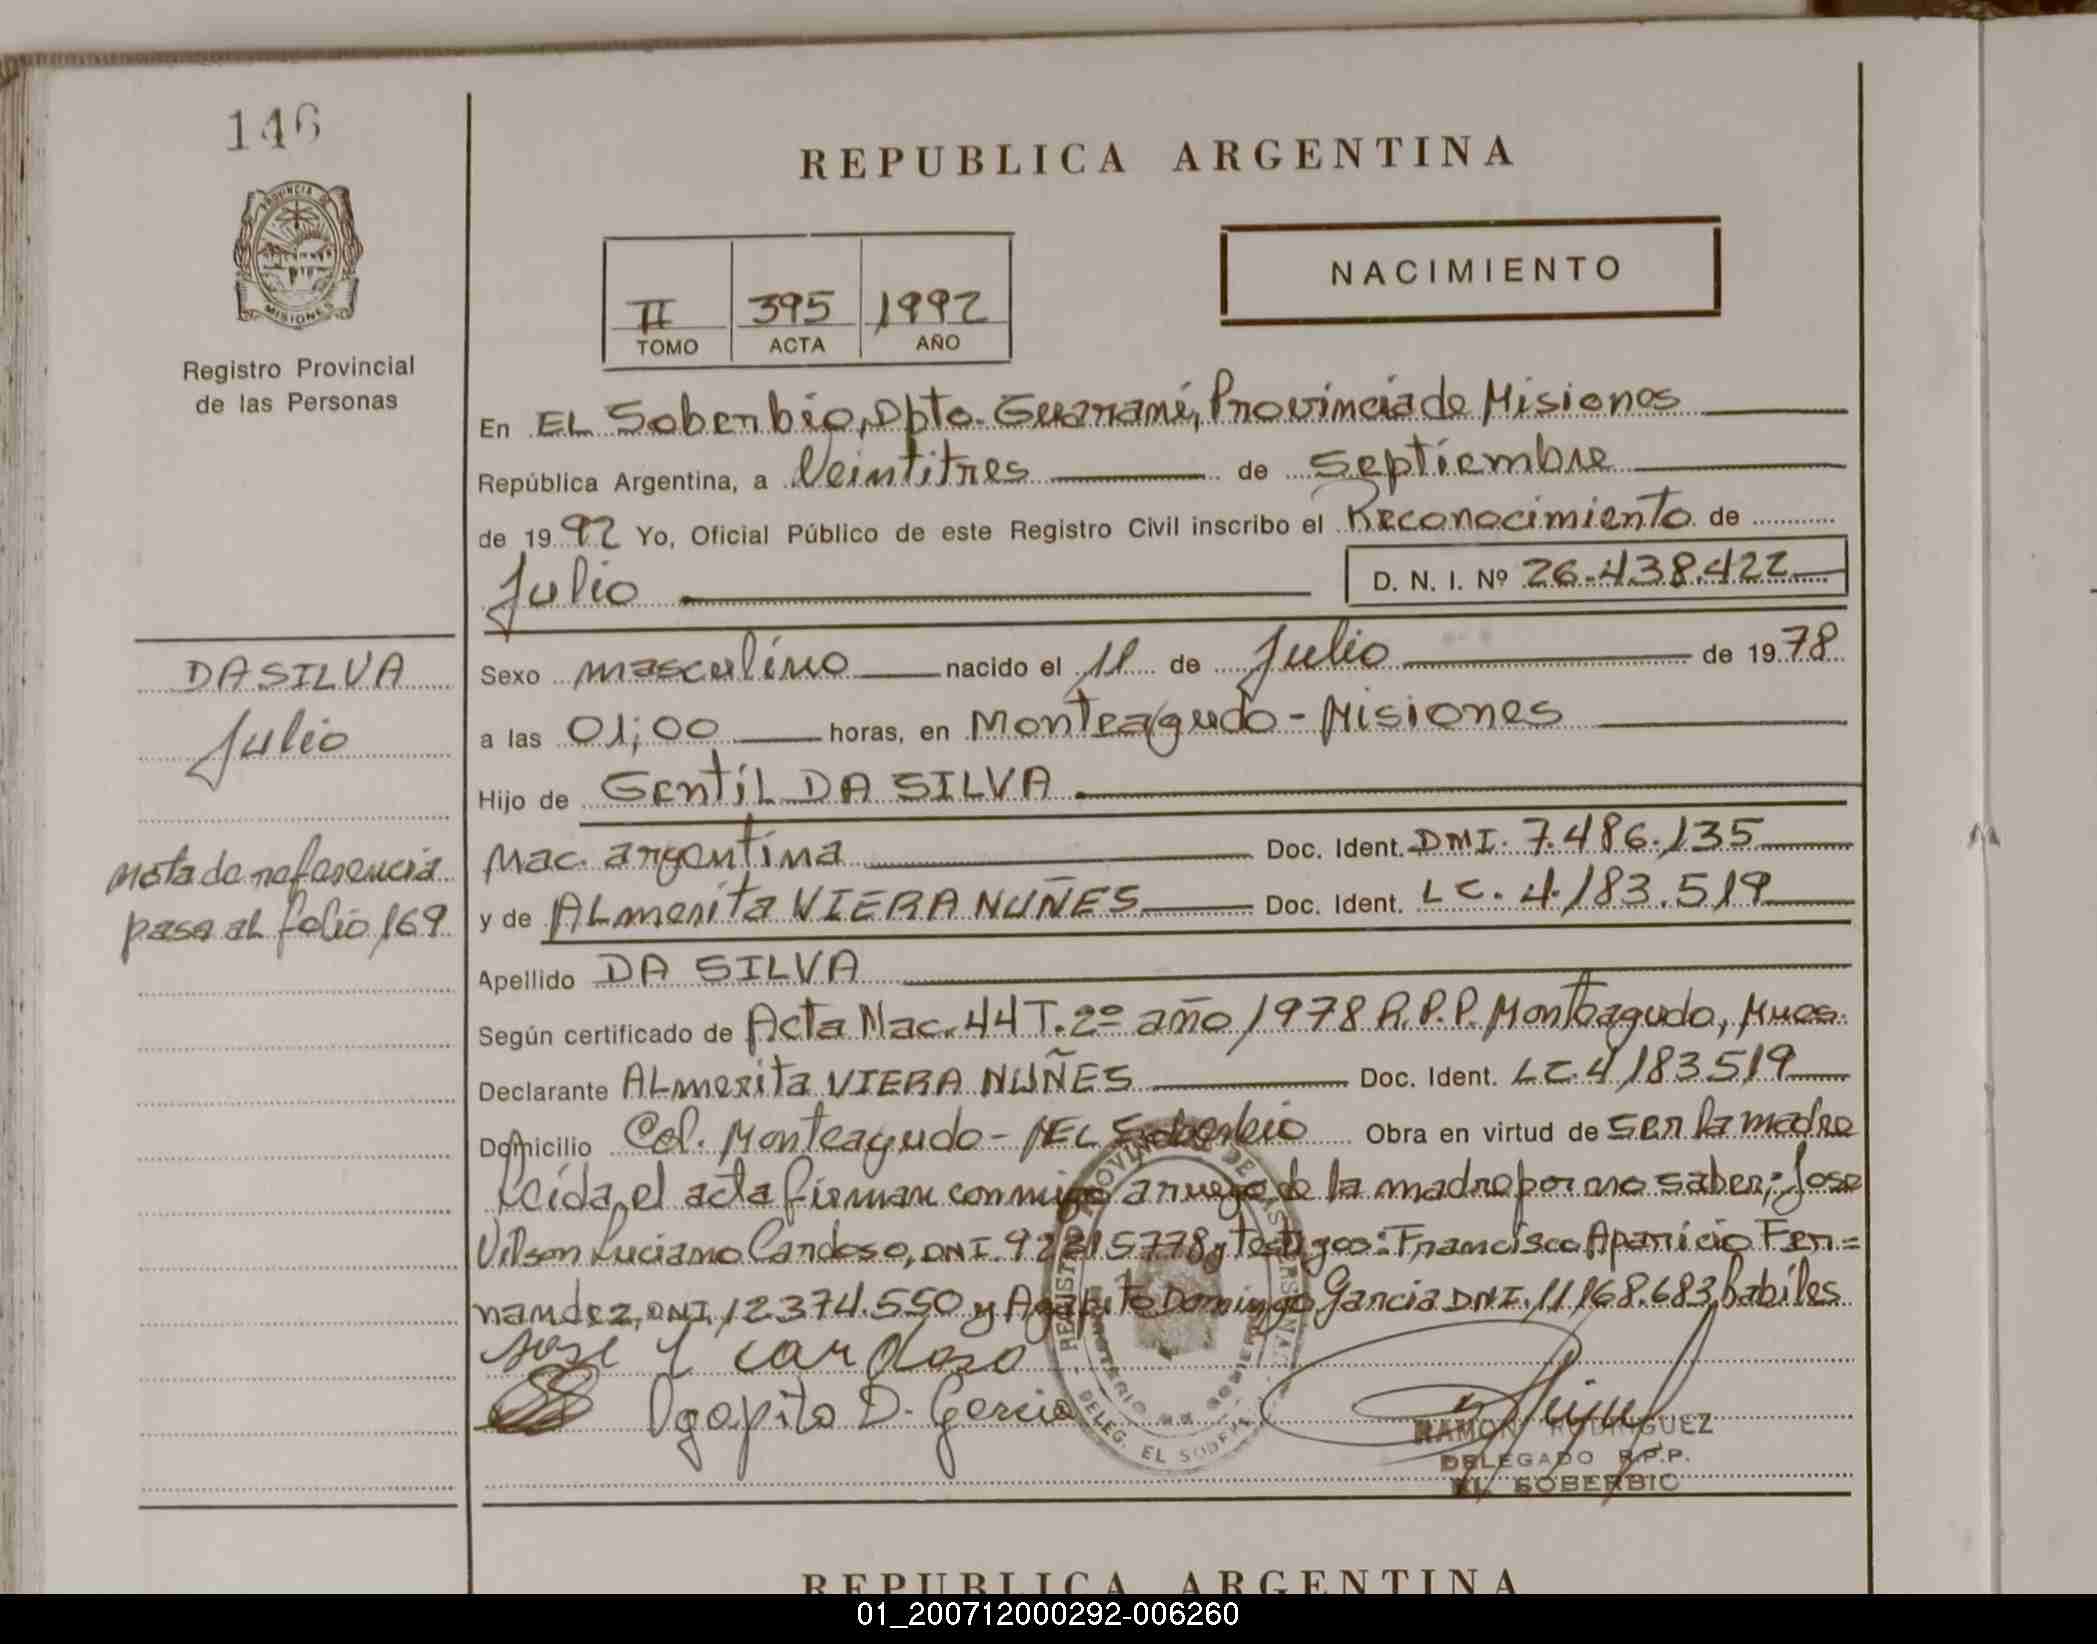 146
REPUBLICA ARGENTINA
PROVINCIA DE
MISIONES
Registro Provincial
de las Personas
NACIMIENTO
II 395 1992
TOMO ACTA AÑO
En EL Soberbio, Dpto. Guarani, Provincia de Misiones
República Argentina, a Veintitres de Septiembre
de 1992 Yo, Oficial Público de este Registro Civil inscribo el Reconocimiento de
Julio D. N. I. Nº 26.438.422
DA SILVA
Julio
Nota de referencia
pasa al folio 169
Sexo masculino nacido el 11 de Julio de 1978
a las 01;00 horas, en Monteagudo - Misiones
Hijo de Gentil DA SILVA
Nac. argentina Doc. Ident. DNI. 7.486.135
y de ALmerita VIERA NUÑES Doc. Ident. LC. 4.183.519
Apellido DA SILVA
Según certificado de Acta Nac. 44 T. 2º año 1978 R.P.P. Monteagudo, Mnes.
Declarante ALmerita VIERA NUÑES Doc. Ident. LC. 4183519
Domicilio Col. Monteagudo - EL Soberbio Obra en virtud de ser la madre
Leída el acta firman conmigo a ruego de la madre por no saber; Jose
Vilson Luciano Cardoso, DNI. 92215778 y testigos: Francisco Aparicio Fer=
nandez, DNI. 12374.550 y Agapito Domingo Garcia DNI. 11168.683, habiles
Jose L Cardoso
Agapito D. Garcia
RAMON RODRIGUEZ
DELEGADO R.P.P.
EL SOBERBIO
REGISTRO PROVINCIAL DE LAS PERSONAS
MINISTERIO DE GOBIERNO
DELEG. EL SOBERBIO
REPUBLICA ARGENTINA
01_200712000292-006260